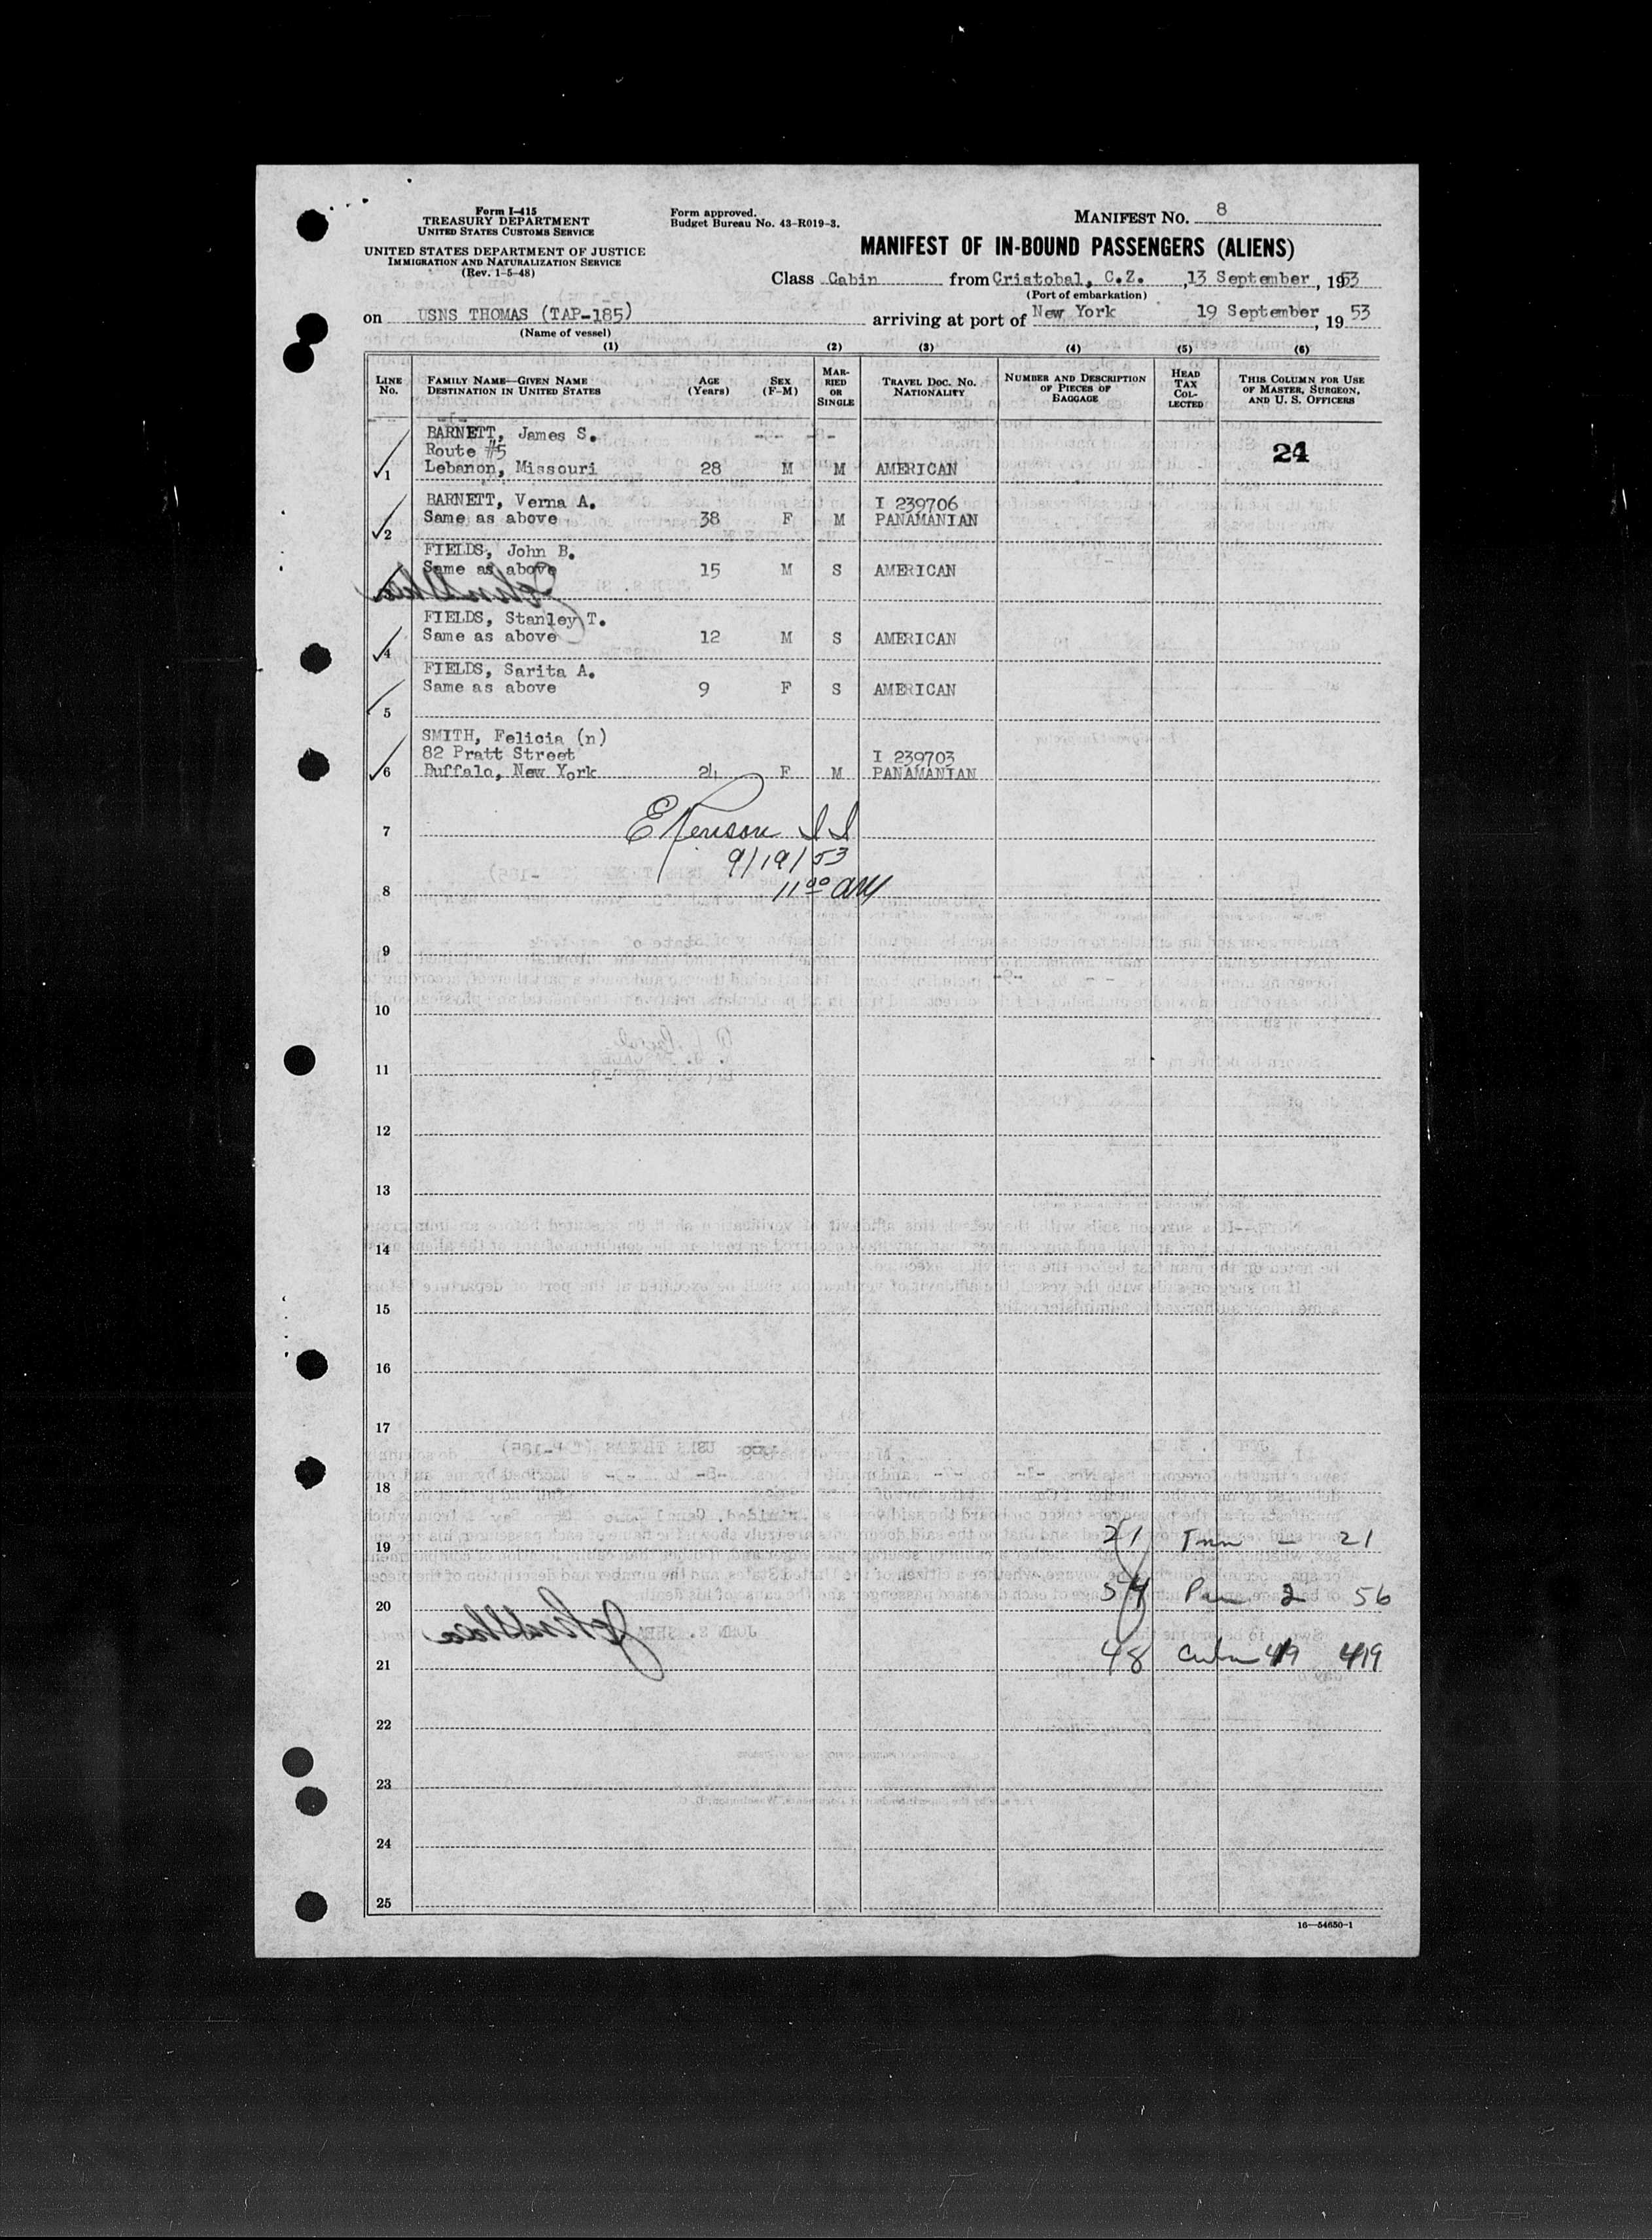 Form I-415
TREASURY DEPARTMENT
UNITED STATES CUSTOMS SERVICE
UNITED STATES DEPARTMENT OF JUSTICE
IMMIGRATION AND NATURALIZATION SERVICE
(Rev. 1-5-48)
Form approved.
Budget Bureau No. 43-R019-3.
MANIFEST NO. 8
MANIFEST OF IN-BOUND PASSENGERS (ALIENS)
Class Cabin from Cristobal, C.Z. , 13 September , 1953
(Port of embarkation)
on USNS THOMAS (TAP-185) arriving at port of New York 19 September, 19 53
(Name of vessel)
(1) (2) (3) (4) (5) (6)
LINE NO. FAMILY NAME—GIVEN NAME DESTINATION IN UNITED STATES AGE (Years) SEX (F-M) MARRIED OR SINGLE TRAVEL DOC. NO. NATIONALITY NUMBER AND DESCRIPTION OF PIECES OF BAGGAGE HEAD TAX COLLECTED THIS COLUMN FOR USE OF MASTER, SURGEON, AND U. S. OFFICERS
BARNETT, James S.
Route #5 24
1 Lebanon, Missouri 28 M M AMERICAN
BARNETT, Verna A. I 239706
2 Same as above 38 F M PANAMANIAN
FIELDS, John B.
Same as above 15 M S AMERICAN
FIELDS, Stanley T.
4 Same as above 12 M S AMERICAN
FIELDS, Sarita A.
Same as above 9 F S AMERICAN
5
SMITH, Felicia (n)
82 Pratt Street I 239703
6 Buffalo, New York 24 F M PANAMANIAN
7
9/19/53
8 11 00 AM
9
10
11
12
13
14
15
16
17
18
19 21 – 21
20 54 2 56
21 48 419
22
23
24
25
16—54650-1